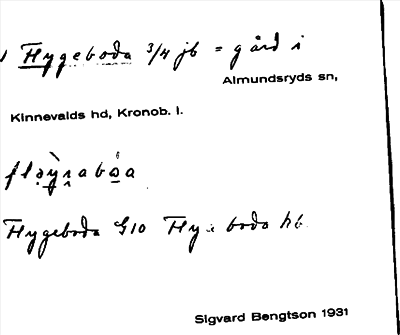 Flygeboda 3/4 jb = gård i
Almundsryds sn,
Kinnevalds hd, Kronob. l.
Flygeboda G10 hb
Sigvard Bengtson 1931